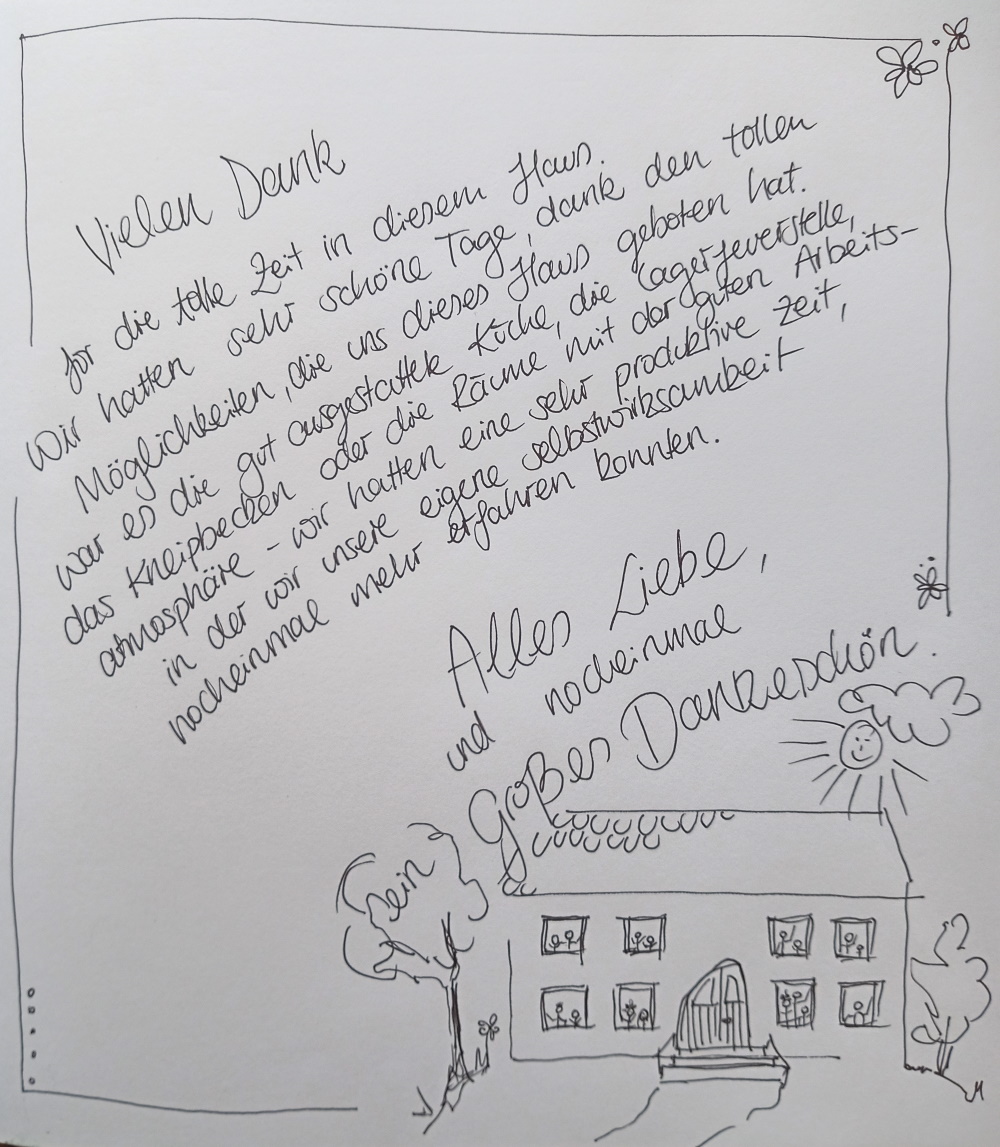 Vielen Dank
für die tolle Zeit in diesem Haus.
Wir hatten sehr schöne Tage, dank den tollen
Möglichkeiten, die uns dieses Haus geboten hat.
war es die gut ausgestattete Küche, die Lagerfeuerstelle,
das Kneipbecken oder die Räume mit der guten Arbeits-
atmosphäre - wir hatten eine sehr produktive Zeit,
in der wir unsere eigene selbstwirksamkeit
nocheinmal mehr erfahren konnten.
Alles Liebe,
und nocheinmal
ein
Großes Dankeschön.